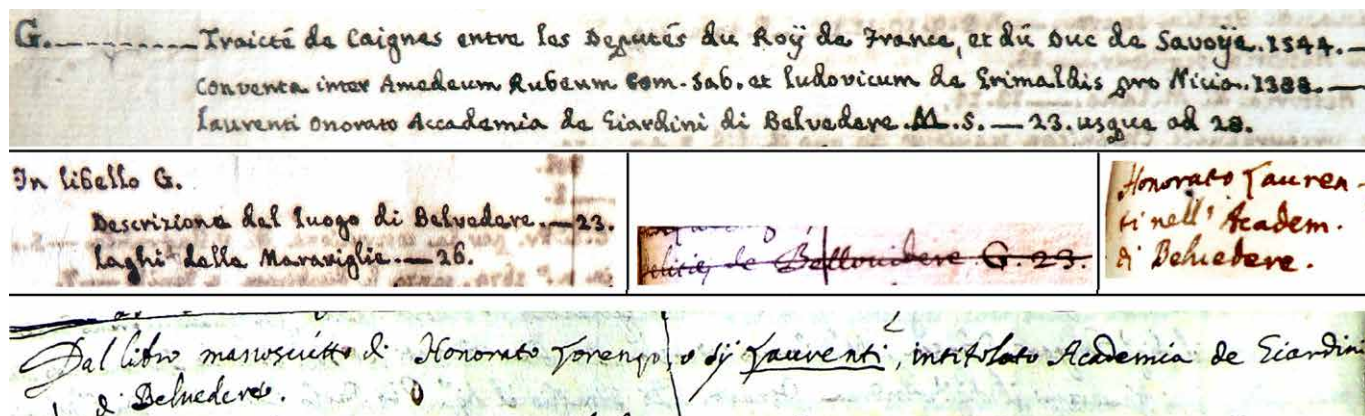 G. Traicté de Caignes entre les Deputés du Roÿ de France, et du Duc de Savoÿe. 1544. —
Conventa inter Amedeum Rubeum Com. Sab. et Ludovicum de Grimaldis pro Nicia. 1388. —
Laurenti Onorato Accademia de Giardini di Belvedere. M. S. — 23. usque ad 28.
In libello G.
Descrizione del luogo di Belvedere. — 23.
Laghi delle Maraviglie. — 26.
de Bellovidere G 23.
Honorato Lauren-
ti nell' Academ.
di Belvedere.
Dal libro manoscritto di Honorato Lorenzo, o sij Laurenti, intitolato Academia de Giardini
di Belvedere.